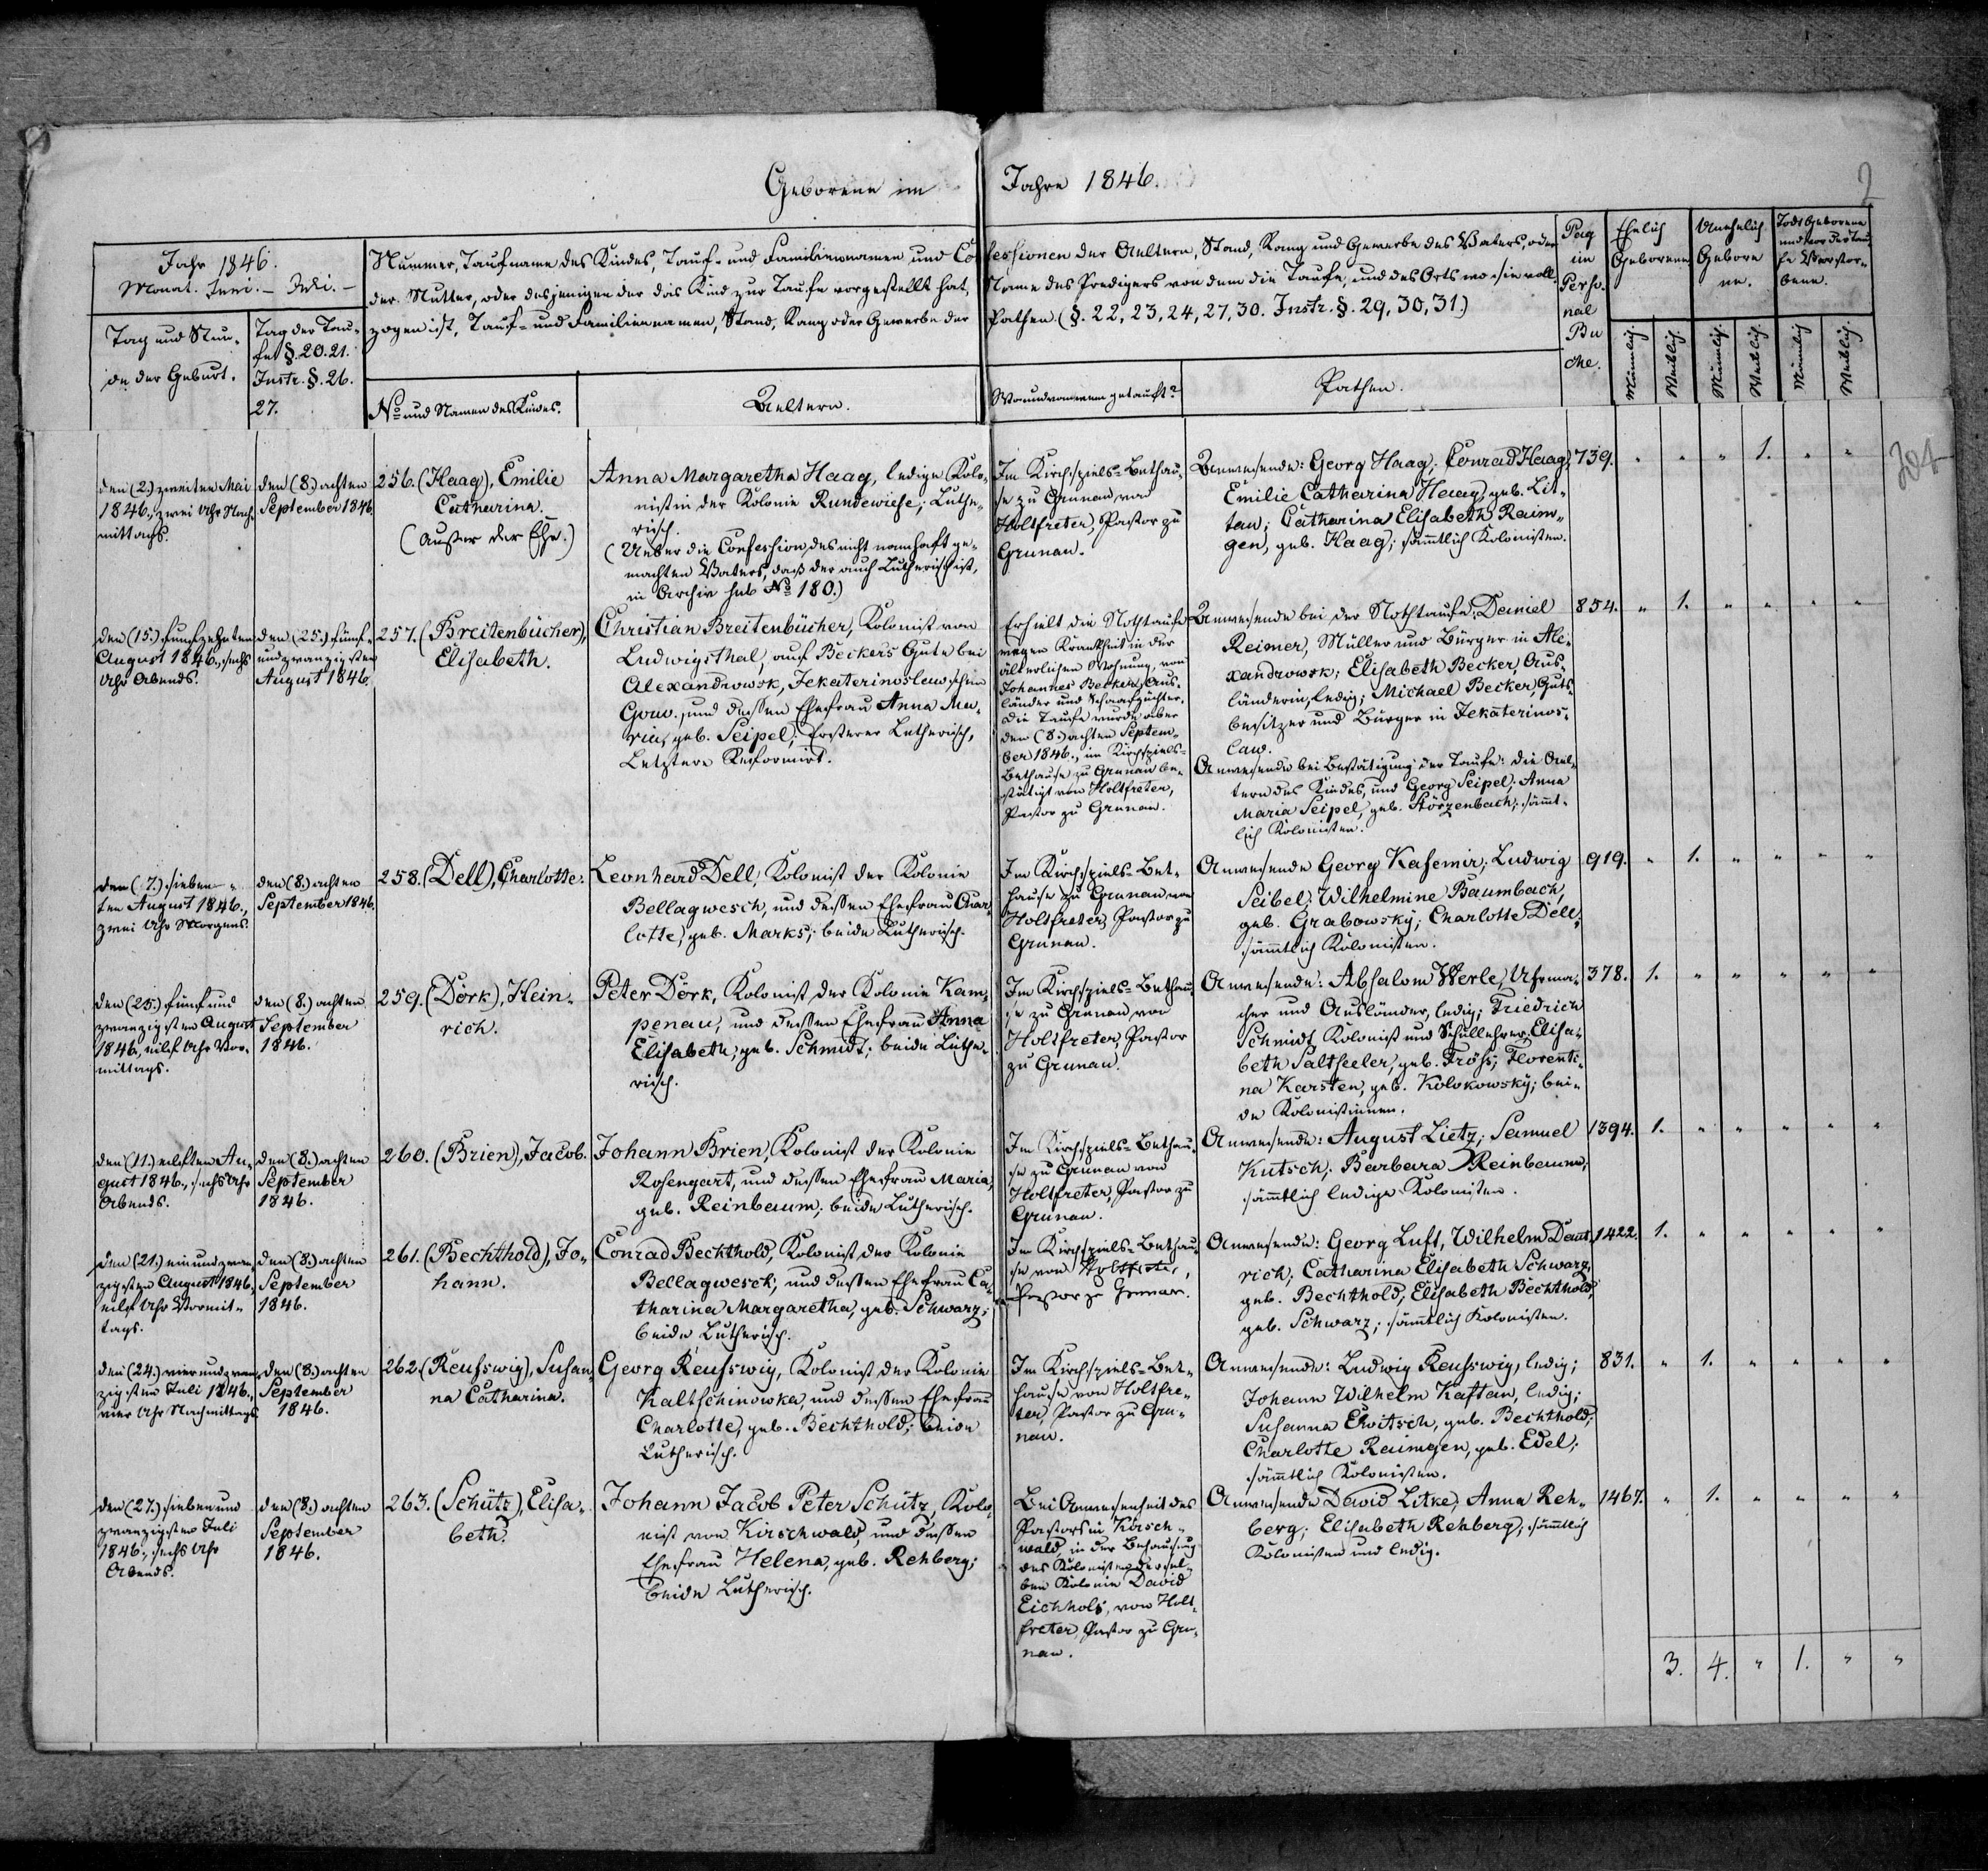 Geborene im Jahre 1846.
2
Jahr 1846.
Monat. Juni. – Juli. –
Tag und Stun-
de der Geburt.
Tag der Tau-
fe §. 20. 21.
Instr. §. 26.
27.
Nummer, Taufname des Kindes, Tauf- und Familiennamen, und Confessionen der Aeltern, Stand, Rang und Gewerbe des Vaters, oder
der Mutter, oder desjenigen der das Kind zur Taufe vorgestellt hat, Name des Predigers von dem die Taufe, und des Orts wo sie voll-
zogen ist, Tauf- und Familiennamen, Stand, Rang oder Gewerbe der Pathen (§. 22, 23, 24, 27, 30. Instr. §. 29, 30, 31.)
No und Namen des Kindes.
Aeltern.
Wo und von wem getauft?
Pathen.
Pag
im
Perso-
nal
Bu
che.
Ehelich
Geborene.
Unehelich
Gebore
ne.
Todt Geborene
und vor der Tau-
fe Verstor-
bene.
Männlich.
Weiblich.
Männlich.
Weiblich.
Männlich.
Weiblich.
304
den (2.) zweiten Mai
1846., zwei Uhr Nach-
mittags.
den (8.) achten
September 1846.
256. (Haag), Emilie
Catharina.
(Außer der Ehe.)
Anna Margaretha Haag, ledige Kolo-
nistin der Kolonie Rundewiese; Luthe-
risch.
(Ueber die Confession des nicht namhaft ge-
machten Vaters, daß der auch Lutherisch ist,
in Archiv sub No 180.)
Im Kirchspiels-Bethau-
se zu Grunau, von
Holtfreter, Pastor zu
Grunau.
Anwesende: Georg Haag; Conrad Haag;
Emilie Catharina Haag, geb. Lit-
tau; Catharina Elisabeth Raim-
gen, geb. Haag; sämmtlich Kolonisten.
739. " " " 1. " "
den (15.) fünfzehnten
August 1846., sechs
Uhr Abends.
den (25.) fünf-
undzwanzigsten
August 1846.
257. (Breitenbücher),
Elisabeth.
Christian Breitenbücher, Kolonist von
Ludwigsthal, auf Beckers Gute bei
Alexandrowsk, Jekaterinoslaw'schen
Gouv., und dessen Ehefrau Anna Ma-
ria, geb. Seipel; Ersterer Lutherisch,
Letztere Reformirt.
Erhielt die Nothtaufe
wegen Krankheit in der
älterlichen Wohnung, von
Johannes Becker, Aus-
länder und Schaafzüchter.
Die Taufe wurde aber
den (8.) achten Septem-
ber 1846., im Kirchspiels-
Bethause zu Grunau be-
stätigt von Holtfreter,
Pastor zu Grunau.
Anwesende bei der Nothtaufe: Daniel
Reimer, Müller und Bürger in Ale-
xandrowsk; Elisabeth Becker, Aus-
länderin, ledig; Michael Becker, Guts-
besitzer und Bürger in Jekaterinos-
law.
Anwesende bei Bestätigung der Taufe: die Ael-
tern des Kindes, und Georg Seipel; Anna
Maria Seipel, geb. Störzenbach; sämmt-
lich Kolonisten.
854. " 1. " " " "
den (7.) sieben-
ten August 1846.,
zwei Uhr Morgens.
den (8.) achten
September 1846.
258. (Dell), Charlotte.
Leonhard Dell, Kolonist der Kolonie
Bellagwesch, und dessen Ehefrau Char-
lotte, geb. Marks; beide Lutherisch.
Im Kirchspiels-Bet-
hause zu Grunau, von
Holtfreter, Pastor zu
Grunau.
Anwesende Georg Kasemir; Ludwig
Seibel; Wilhelmine Baumbach,
geb. Grabowsky; Charlotte Dell;
sämmtlich Kolonisten.
919. " 1. " " " "
den (25.) fünf und
zwanzigsten August
1846., eilf Uhr Vor-
mittags.
den (8.) achten
September
1846.
259. (Dörk), Hein-
rich.
Peter Dörk, Kolonist der Kolonie Kam-
penau, und dessen Ehefrau Anna
Elisabeth, geb. Schmidt; beide Luthe-
risch.
Im Kirchspiels-Bethau-
se zu Grunau, von
Holtfreter, Pastor
zu Grunau.
Anwesende: Absalom Werle, Uhrma-
cher und Ausländer, ledig; Friedrich
Schmidt, Kolonist und Schullehrer; Elisa-
beth Saltseeler, geb. Fröse; Florenti-
na Karsten, geb. Kolokowsky; bei-
de Kolonistinnen.
378. 1. " " " " "
den (11.) eilften Au-
gust 1846., sechs Uhr
Abends.
den (8.) achten
September
1846.
260. (Brien), Jacob.
Johann Brien, Kolonist der Kolonie
Rosengart, und dessen Ehefrau Maria,
geb. Reinbaum; beide Lutherisch.
Im Kirchspiels-Bethau-
se zu Grunau von
Holtfreter, Pastor zu
Grunau.
Anwesende: August Lietz; Samuel
Kutsch; Barbara Reinbaum;
sämmtlich ledige Kolonisten.
1394. 1. " " " " "
den (21.) ein und zwan-
zigsten August 1846.,
eilf Uhr Vormit-
tags.
den (8.) achten
September
1846.
261. (Bechthold), Jo-
hann.
Conrad Bechthold, Kolonist der Kolonie
Bellagwesch, und dessen Ehefrau Ca-
tharina Margaretha, geb. Schwarz;
beide Lutherisch.
Im Kirchspiels-Bethau-
se von Holtfreter,
Pastor zu Grunau.
Anwesende: Georg Luft, Wilhelm Daut-
rich; Catharina Elisabeth Schwarz,
geb. Bechthold; Elisabeth Bechthold,
geb. Schwarz; sämmtlich Kolonisten.
1422. 1. " " " " "
den (24.) vier und zwan-
zigsten Juli 1846.,
vier Uhr Nachmittags.
den (8.) achten
September
1846.
262. (Reuswig), Susan-
na Catharina.
Georg Reuswig, Kolonist der Kolonie
Kaltschinowka, und dessen Ehefrau
Charlotte, geb. Bechthold; beide
Lutherisch.
Im Kirchspiels-Bet-
hause von Holtfre-
ter, Pastor zu Gru-
nau.
Anwesende: Ludwig Reuswig, ledig;
Johann Wilhelm Kaftan, ledig;
Susanna, geb. Bechthold;
Charlotte Raimgen, geb. Edel;
sämmtlich Kolonisten.
831. " 1. " " " "
den (27.) sieben und
zwanzigsten Juli
1846., sechs Uhr
Abends.
den (8.) achten
September
1846.
263. (Schütz), Elisa-
beth.
Johann Jacob Peter Schütz, Kolo-
nist von Kirschwald, und dessen
Ehefrau Helena, geb. Rehberg;
beide Lutherisch.
Bei Anwesenheit des
Pastors in Kirsch-
wald, in der Behausung
des Kolonisten dersel-
ben Kolonie David
Eichholz, von Holt-
freter, Pastor zu Gru-
nau.
Anwesende David Litke, Anna Reh-
berg; Elisabeth Rehberg; sämmtlich
Kolonisten und ledig.
1467. " 1. " " " "
3. 4. " 1. " "